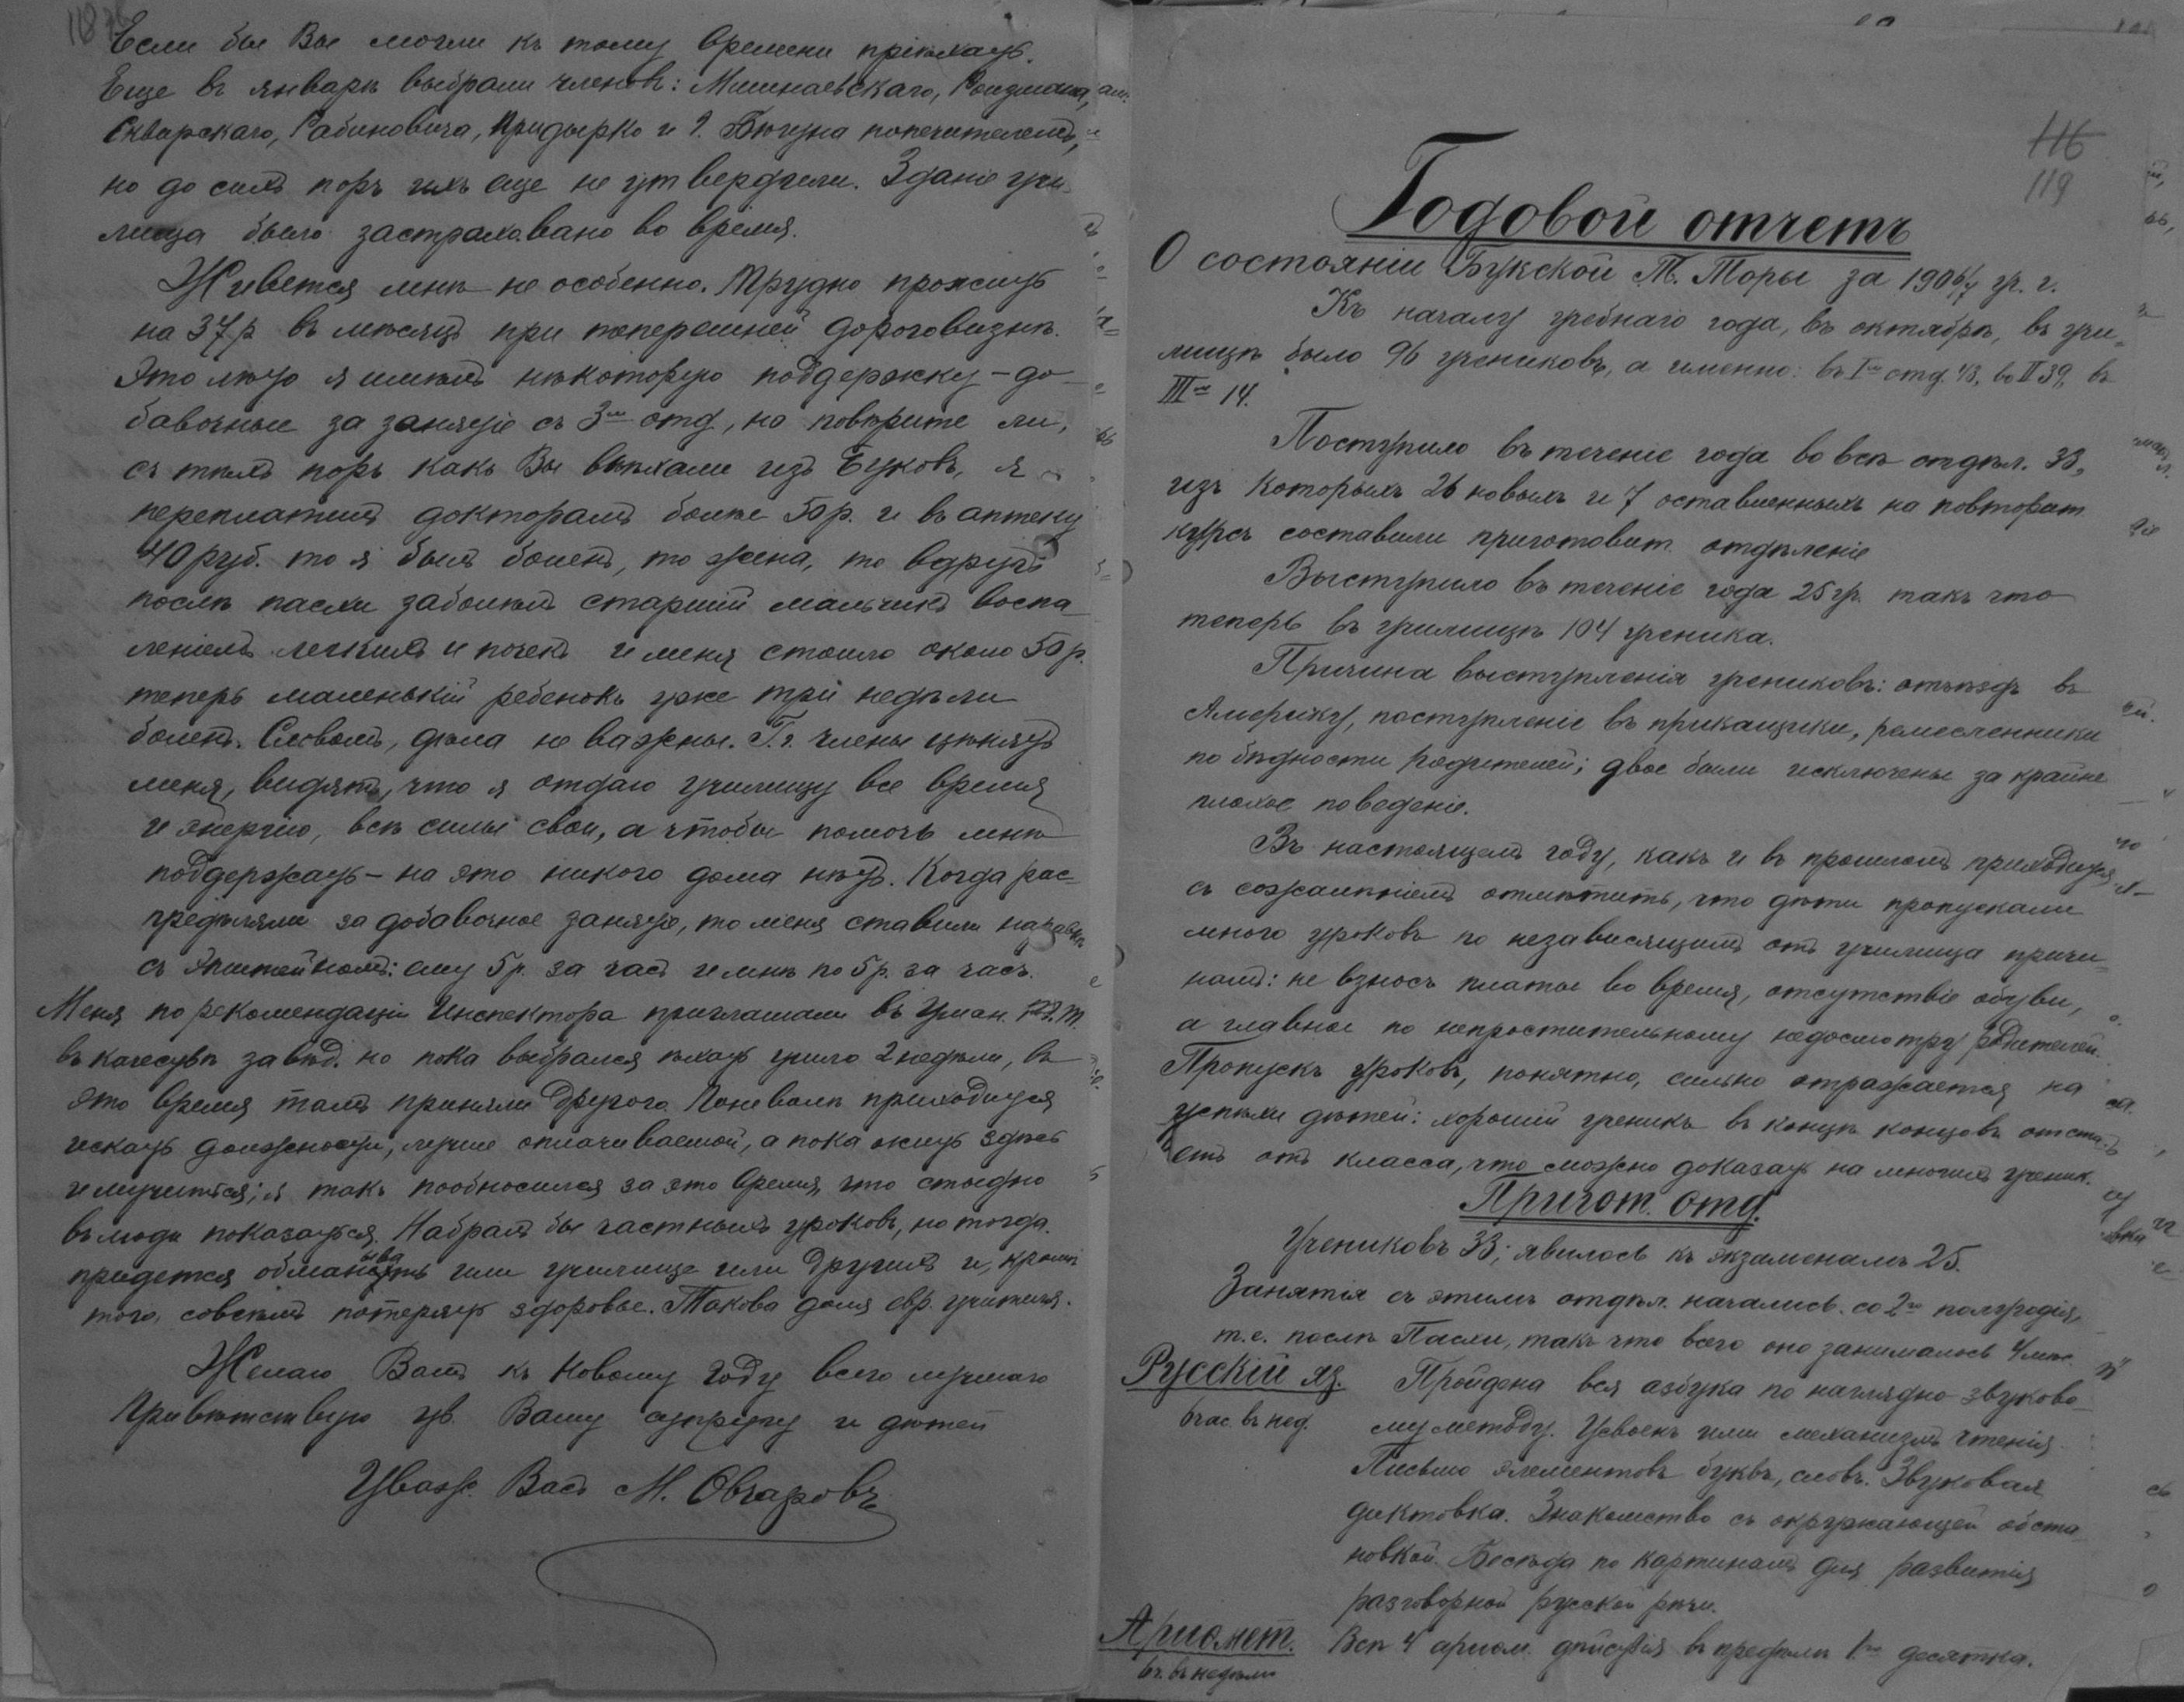 118
Если бы Вы могли къ тому времени пріѣхать.
Еще въ январѣ выбрали членовъ: Мишнаевскаго, Ройзмана,
Сквирскаго, Рабиновича, Придырко и Г. Бѣгуна попечителемъ,
но до сихъ поръ ихъ еще не утвердили. Зданіе учи-
лища было застраховано во время.
Живется мнѣ не особенно. Трудно прожить
на 37 р въ мѣсяцъ при теперешней дороговизнѣ.
Это лѣто я имѣлъ нѣкоторую поддержку – до-
бавочные за занятіе съ 3им отд, но повѣрите ли,
съ тѣхъ поръ какъ Вы выѣхали изъ Буковъ, я
переплатилъ докторамъ болѣе 50 р. и въ аптеку
40 руб. то я былъ боленъ, то жена, то вдругъ
послѣ пасхи заболѣлъ старшій мальчикъ воспа
леніемъ легкихъ и почекъ и меня стоило около 50 р.
теперь маленькій ребенокъ уже три недѣли
боленъ. Словомъ, дѣла не важны. Г.г. члены цѣнятъ
меня, видятъ, что я отдаю училищу все время
и энергію, всѣ силы свои, а чтобы помочь мнѣ
поддержать – на это никого дома нѣтъ. Когда рас-
предѣляли за добавочное занятіе, то меня ставили наравнѣ
съ Эпштейномъ: ему 5 р. за часъ и мнѣ по 5 р. за часъ.
Меня по рекомендаціи Инспектора приглашали въ Уман. Т.
въ качествѣ завѣд. но пока выбрался ѣхать ушло 2 недѣли, въ
это время тамъ приняли другого. Поневолѣ приходится
искать должности, лучше оплачиваемой, а пока жить здѣсь
и мучиться; я такъ пообносился за это время, что стыдно
въ люди показаться. Набралъ бы частныхъ уроковъ, но тогда
придется обманывать или училище или другихъ и, кромѣ
того, совсѣмъ потерять здоровье. Такова доля евр. учителя.
Желаю Вамъ къ Новому Году всего лучшаго
Привѣтствую ув. Вашу супругу и дѣтей
Уваж. Васъ М. Овчаровъ
116
119
Годовой отчетъ
О состояніи Букской Т. Торы за 1906/7 уч. г.
Къ началу учебнаго года, въ октябрѣ, въ учи-
лищѣ было 96 учениковъ, а именно: въ Iом отд. 43, во II 39, въ
IIIм 14.
Поступило въ теченіе года во всѣ отдѣл. 33,
изъ которыхъ 26 новыхъ и 7 оставленныхъ на повторит.
курсъ составили приготовит. отдѣленіе
Выступило въ теченіе года 25 уч. такъ что
теперь въ училищѣ 104 ученика.
Причина выступленія учениковъ: отъѣздъ въ
Америку, поступленіе въ прикащики, ремесленники
по бѣдности родителей; двое были исключены за крайне
плохое поведеніе.
Въ настоящемъ году, какъ и въ прошломъ приходится
съ сожалѣніемъ отмѣтить, что дѣти пропускали
много уроковъ по независящимъ отъ училища причи-
намъ: не взносъ платы во время, отсутствіе обуви,
а главное по непростительному недосмотру родителей.
Пропускъ уроковъ, понятно, сильно отражается на
успѣхи дѣтей: хорошій ученикъ въ концѣ концовъ отста-
етъ отъ класса, что можно доказать на многихъ ученик.
Пригот. отд.
Учениковъ 33; явилось къ экзаменамъ 25.
Занятія съ этимъ отдѣл. начались со 2го полугодія,
т.е. послѣ Пасхи, такъ что всего оно занималось 4 мѣс.
Русскій яз. Пройдена вся азбука по наглядно-звуково-
6 час. въ нед. му методу. Усвоенъ ими механизмъ чтенія.
Письмо элементовъ буквъ, словъ. Звуковая
диктовка. Знакомство съ окружающей обста-
новкой. Бесѣда по картинамъ для развитія
разговорной русской рѣчи.
Ариѳмет. Всѣ 4 ариѳм. дѣйствія въ предѣлѣ 1го десятка.
6 ч. въ недѣлю